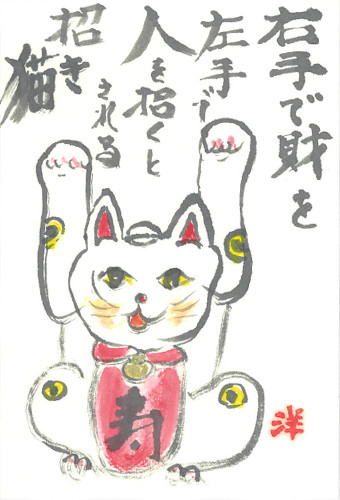 右手で財を
左手で
人を招くと
される
招き
猫
寿
洋